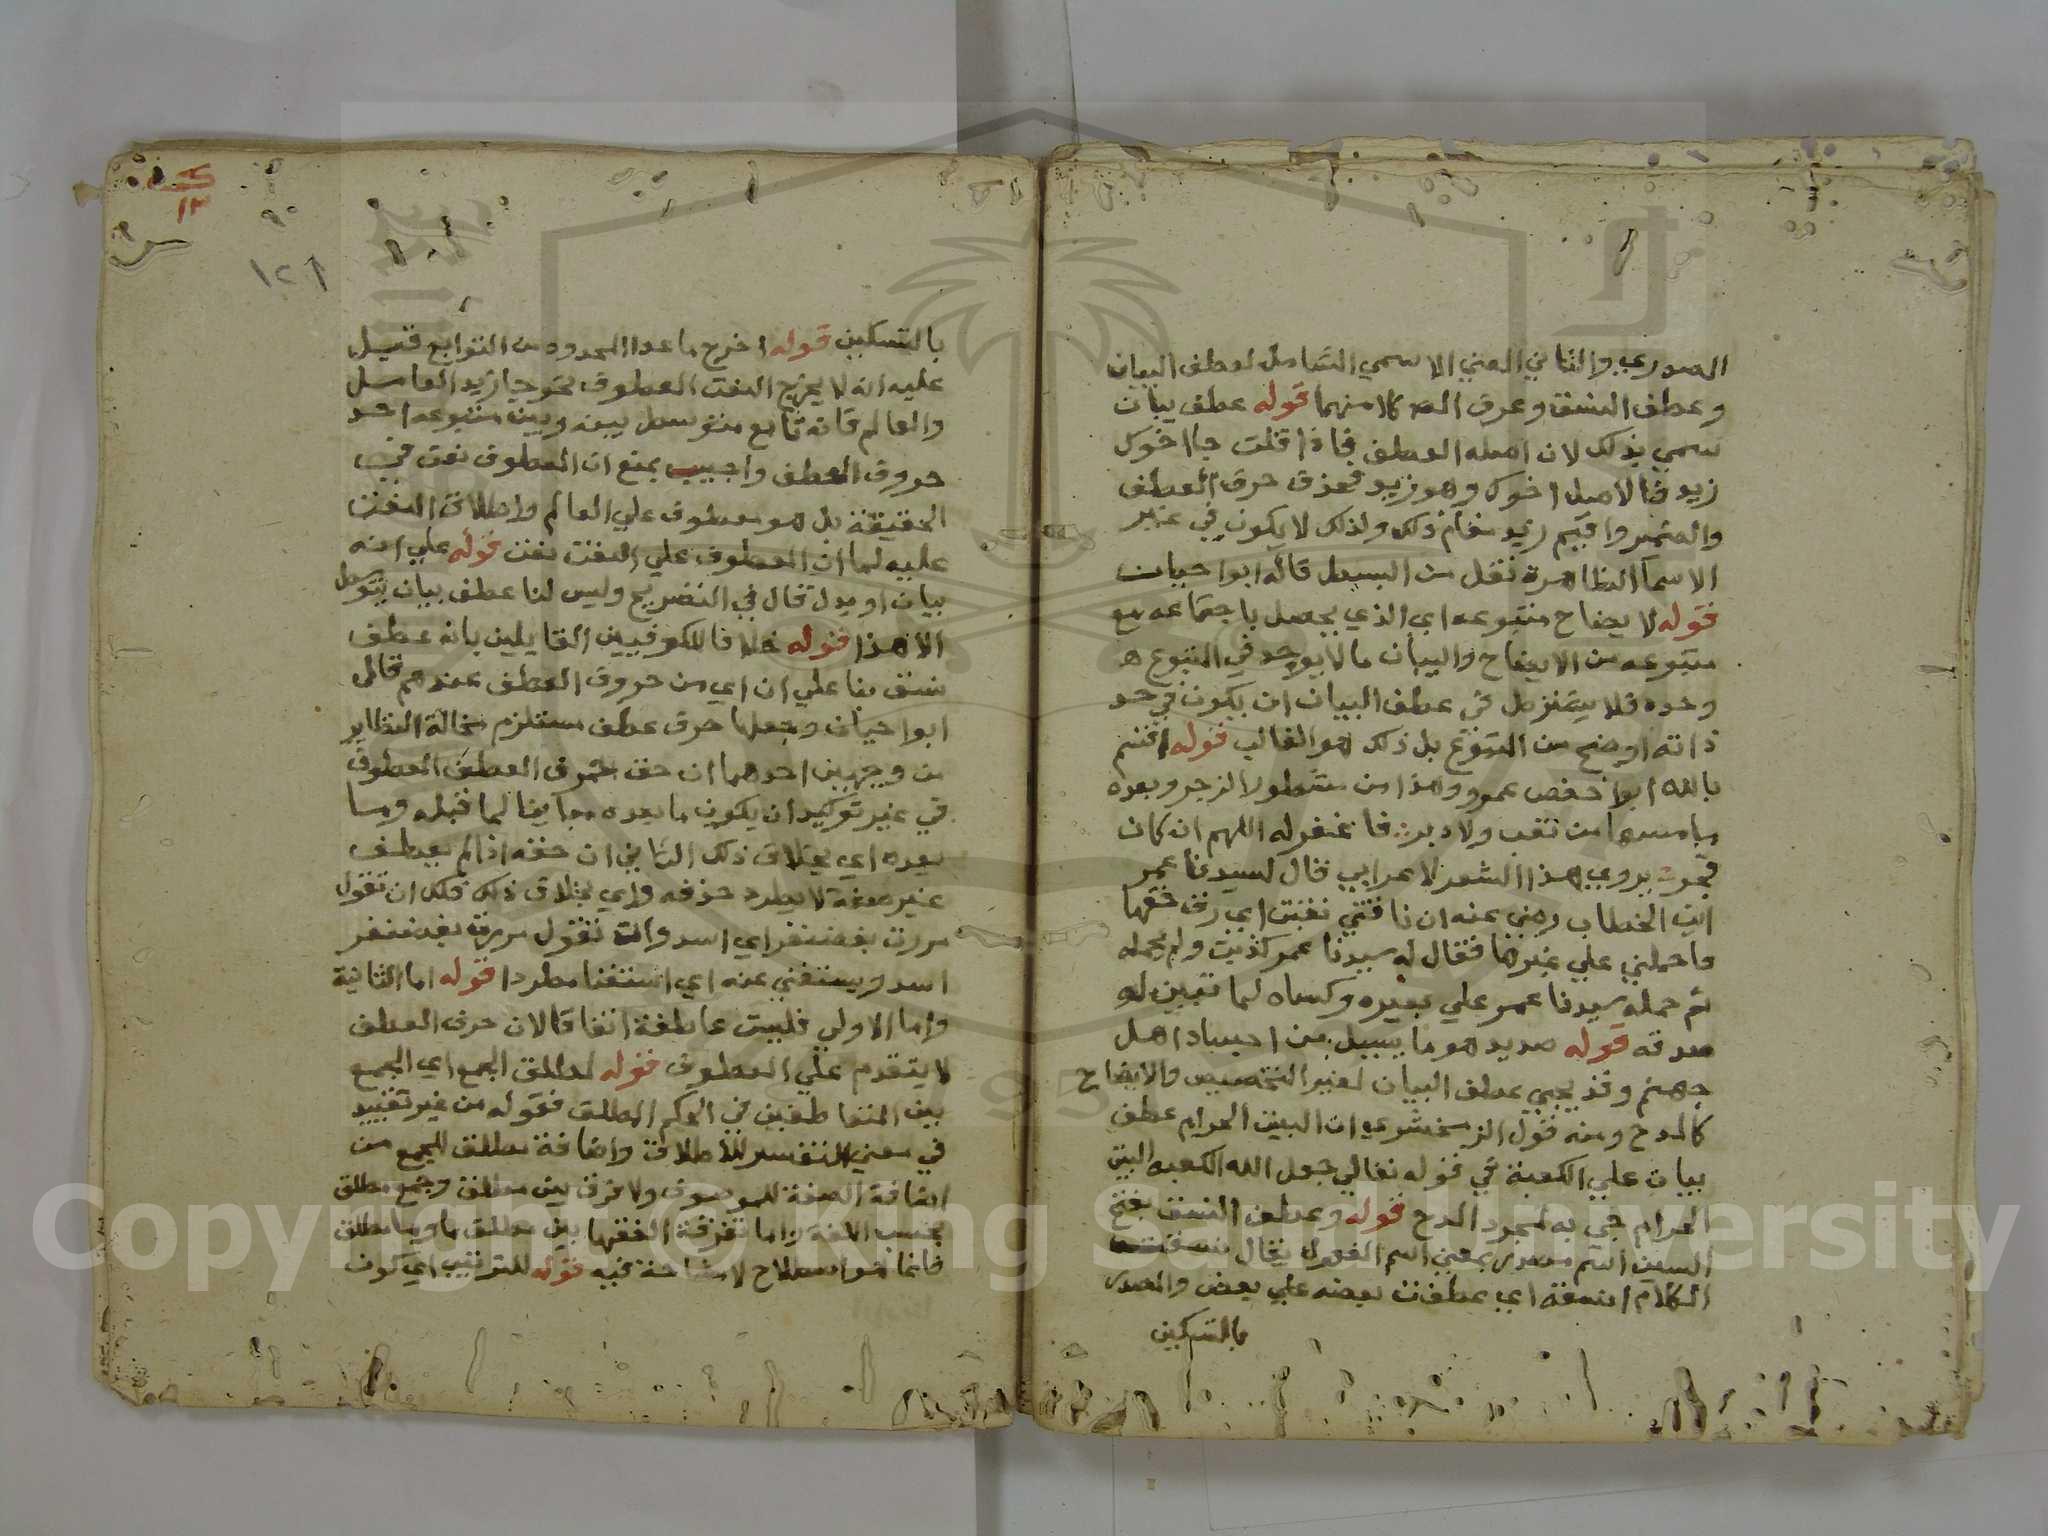 المصدري والثاني المعني الاسمي الشامل لعطف البيان
وعطف النسق وعرف المص كلا منهما قوله عطف بيان
سمي بذلك لان اصله العطف فاذا قلت جا اخوك
زيد فالاصل اخوك وهو زيد فحذف حرف العطف
والضمير واقيم زيد مقام ذلك ولذلك لا يكون في غير
الاسما الظاهرة نقل من البسيط قاله ابوا حيان
قوله لايضاح متبوعه اي الذي يحصل باجتماعه مع
متبوعه من الايضاح والبيان ما لا يوجد في المتبوع
وحده فلا يشترط في عطف البيان ان يكون في حد
ذاته اوضح من المتبوع بل ذلك هو الغالب قوله اقسم
بالله ابوا حفص عمر وهذا من مشطور الزجر وبعده
ما مسها من نقب ولا دبر فاغفر له اللهم ان كان
فجر يروي هذا الشعر لاعرابي قال لسيدنا عمر
ابن الخطاب رضي عنه ان ناقتي نقبت اي رق خفها
واحملني علي غيرها فقال له سيدنا عمر كذبت ولم يحمله
ثم حمله سيدنا عمر علي بعيره وكساه لما تبين له
صدقه قوله صديد هو ما يسيل من اجساد اهل
جهنم وقد يجي عطف البيان لغير التخصيص والايضاح
كالمدح ومنه قول الزمخشري ان البيت الحرام عطف
بيان علي الكعبة في قوله تعالي جعل الله الكعبه البيت
الحرام جي به لمجرد المدح قوله وعطف النسق بفتح
السين اسم مصدر بمعني اسم المفعول يقال نسقت
الكلام انسقه اي عطفت بعضه علي بعض والمصدر
بالتسكين
١٢١
بالتسكين قوله اخرج ما عدا المحدود من التوابع قيل
عليه انه لا يخرج النعت المعطوف نحو جا زيد العامل
والعالم فانه تابع متوسط بينه وبين متبوعه احد
حروف العطف واجيب بمنع ان المعطوف نعت في
الحقيقة بل هو معطوف علي العالم واطلاق النعت
عليه لما ان المعطوف علي النعت نعت قوله علي انه
بيان او بدل قال في التصريح وليس لنا عطف بيان بتوسط
الا هذا قوله خلافا للكوفيين القايلين بانه عطف
نسق بنا علي ان اي من حروف العطف عندهم قال
ابوا حيان وجعلها حرف عطف مستلزم مخالفة النظاير
من وجهين احدهما ان حق حرف العطف المعطوف
في غير توكيد ان يكون ما بعده مباينا لما قبله وما
بعده اي بخلاف ذلك الثاني ان حقه اذا لم يعطف
غير صفة لا يطرد حذفه واي بخلاف ذلك فلك ان تقول
مررت بغضنفر اي اسد وانت تقول مررت بغضنفر
اسد ويستغني عنه اي استغنا مطردا قوله اما الثانية
واما الاولي فليست عاطفة اتفاقا لان حرف العطف
لا يتقدم علي المعطوف قوله لمطلق الجمع اي الجمع
بين المتعاطفين في الحكم المطلق فقوله من غير تقييد
في معني التفسير للاطلاق واضافة مطلق للجمع من
اضافة الصفة للموصوف ولا فرق بين مطلق وجمع مطلق
بحسب اللغة واما تفرقة الفقها بين مطلق ما وما مطلق
فانما هو اصطلاح لا مشاحة فيه قوله للترتيب اي كون
Copyright © King Saud University